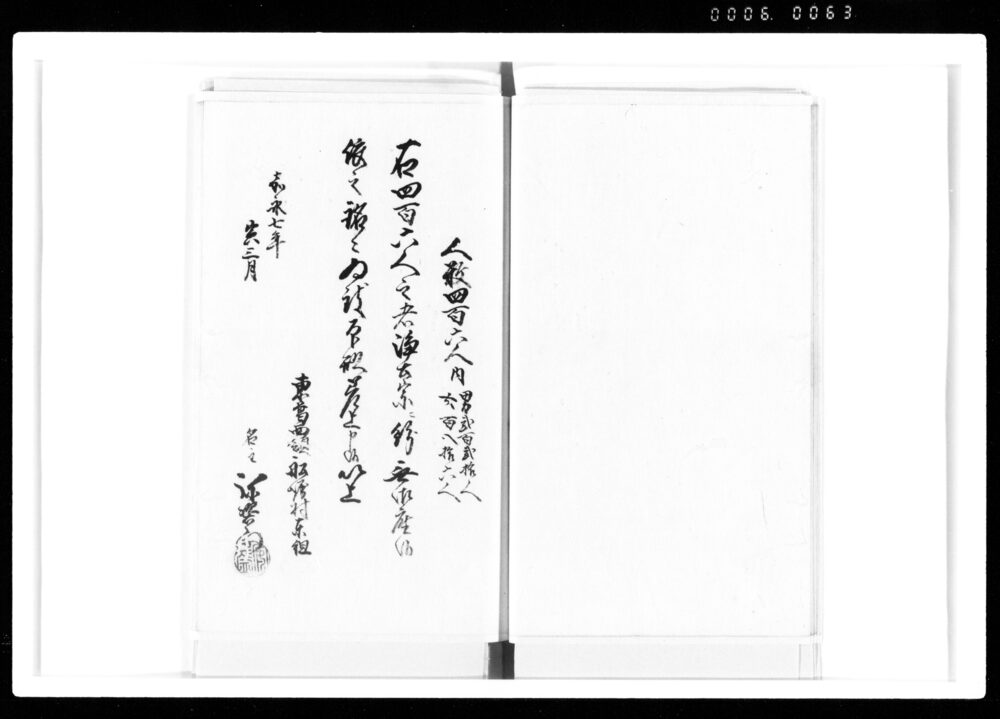 0006. 0063
人数四百六人内 男弐百弐拾人
女百八拾六人
右四百六人之者浄土宗ニ紛無御座候
依之銘々為致印形差上申候以上
嘉永七年
寅三月
村東組
名主